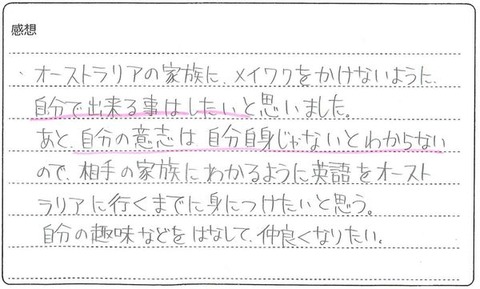 感想
・オーストラリアの家族に、メイワクをかけないように、
自分で出来る事はしたいと思いました。
あと、自分の意志は自分自身じゃないとわからない
ので、相手の家族にわかるように英語をオースト
ラリアに行くまでに身につけたいと思う。
自分の趣味などをはなして、仲良くなりたい。